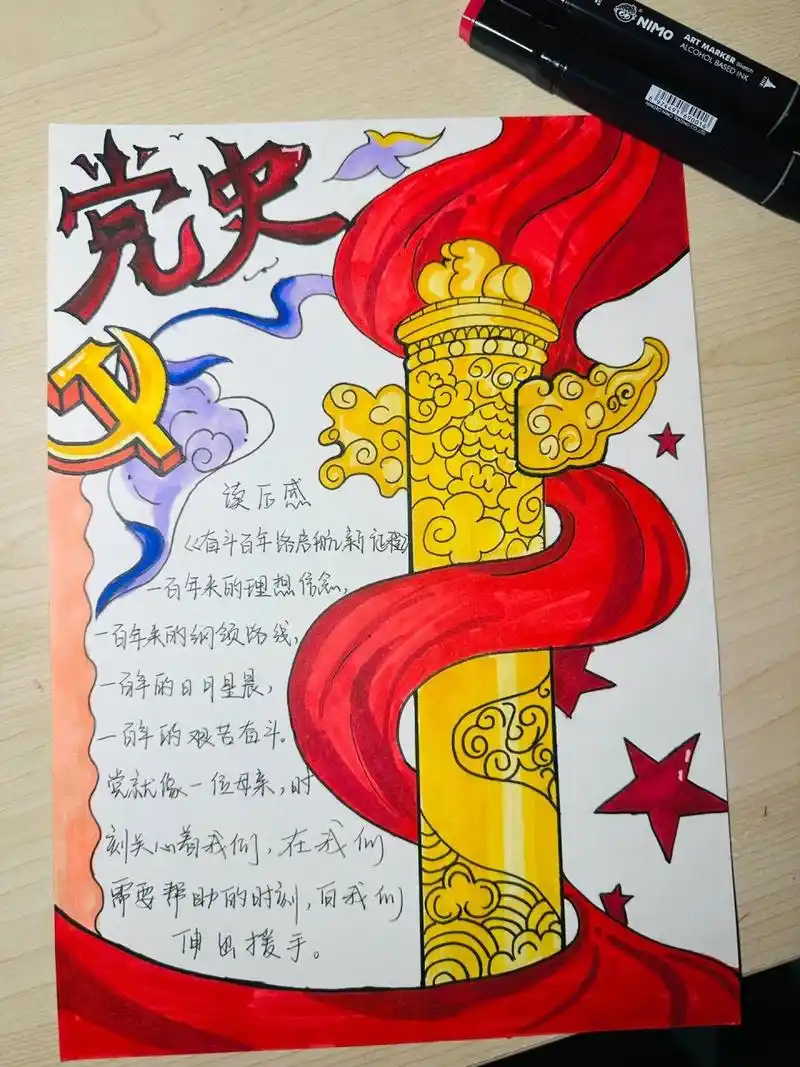 党史
读后感
《奋斗百年路启航新征程》
一百年来的理想信念，
一百年来的纲领路线，
一百年的日月星晨，
一百年的艰苦奋斗。
党就像一位母亲，时
刻关心着我们，在我们
需要帮助的时刻，向我们
伸出援手。
NIMO
ART MARKER Sketch
ALCOHOL BASED INK